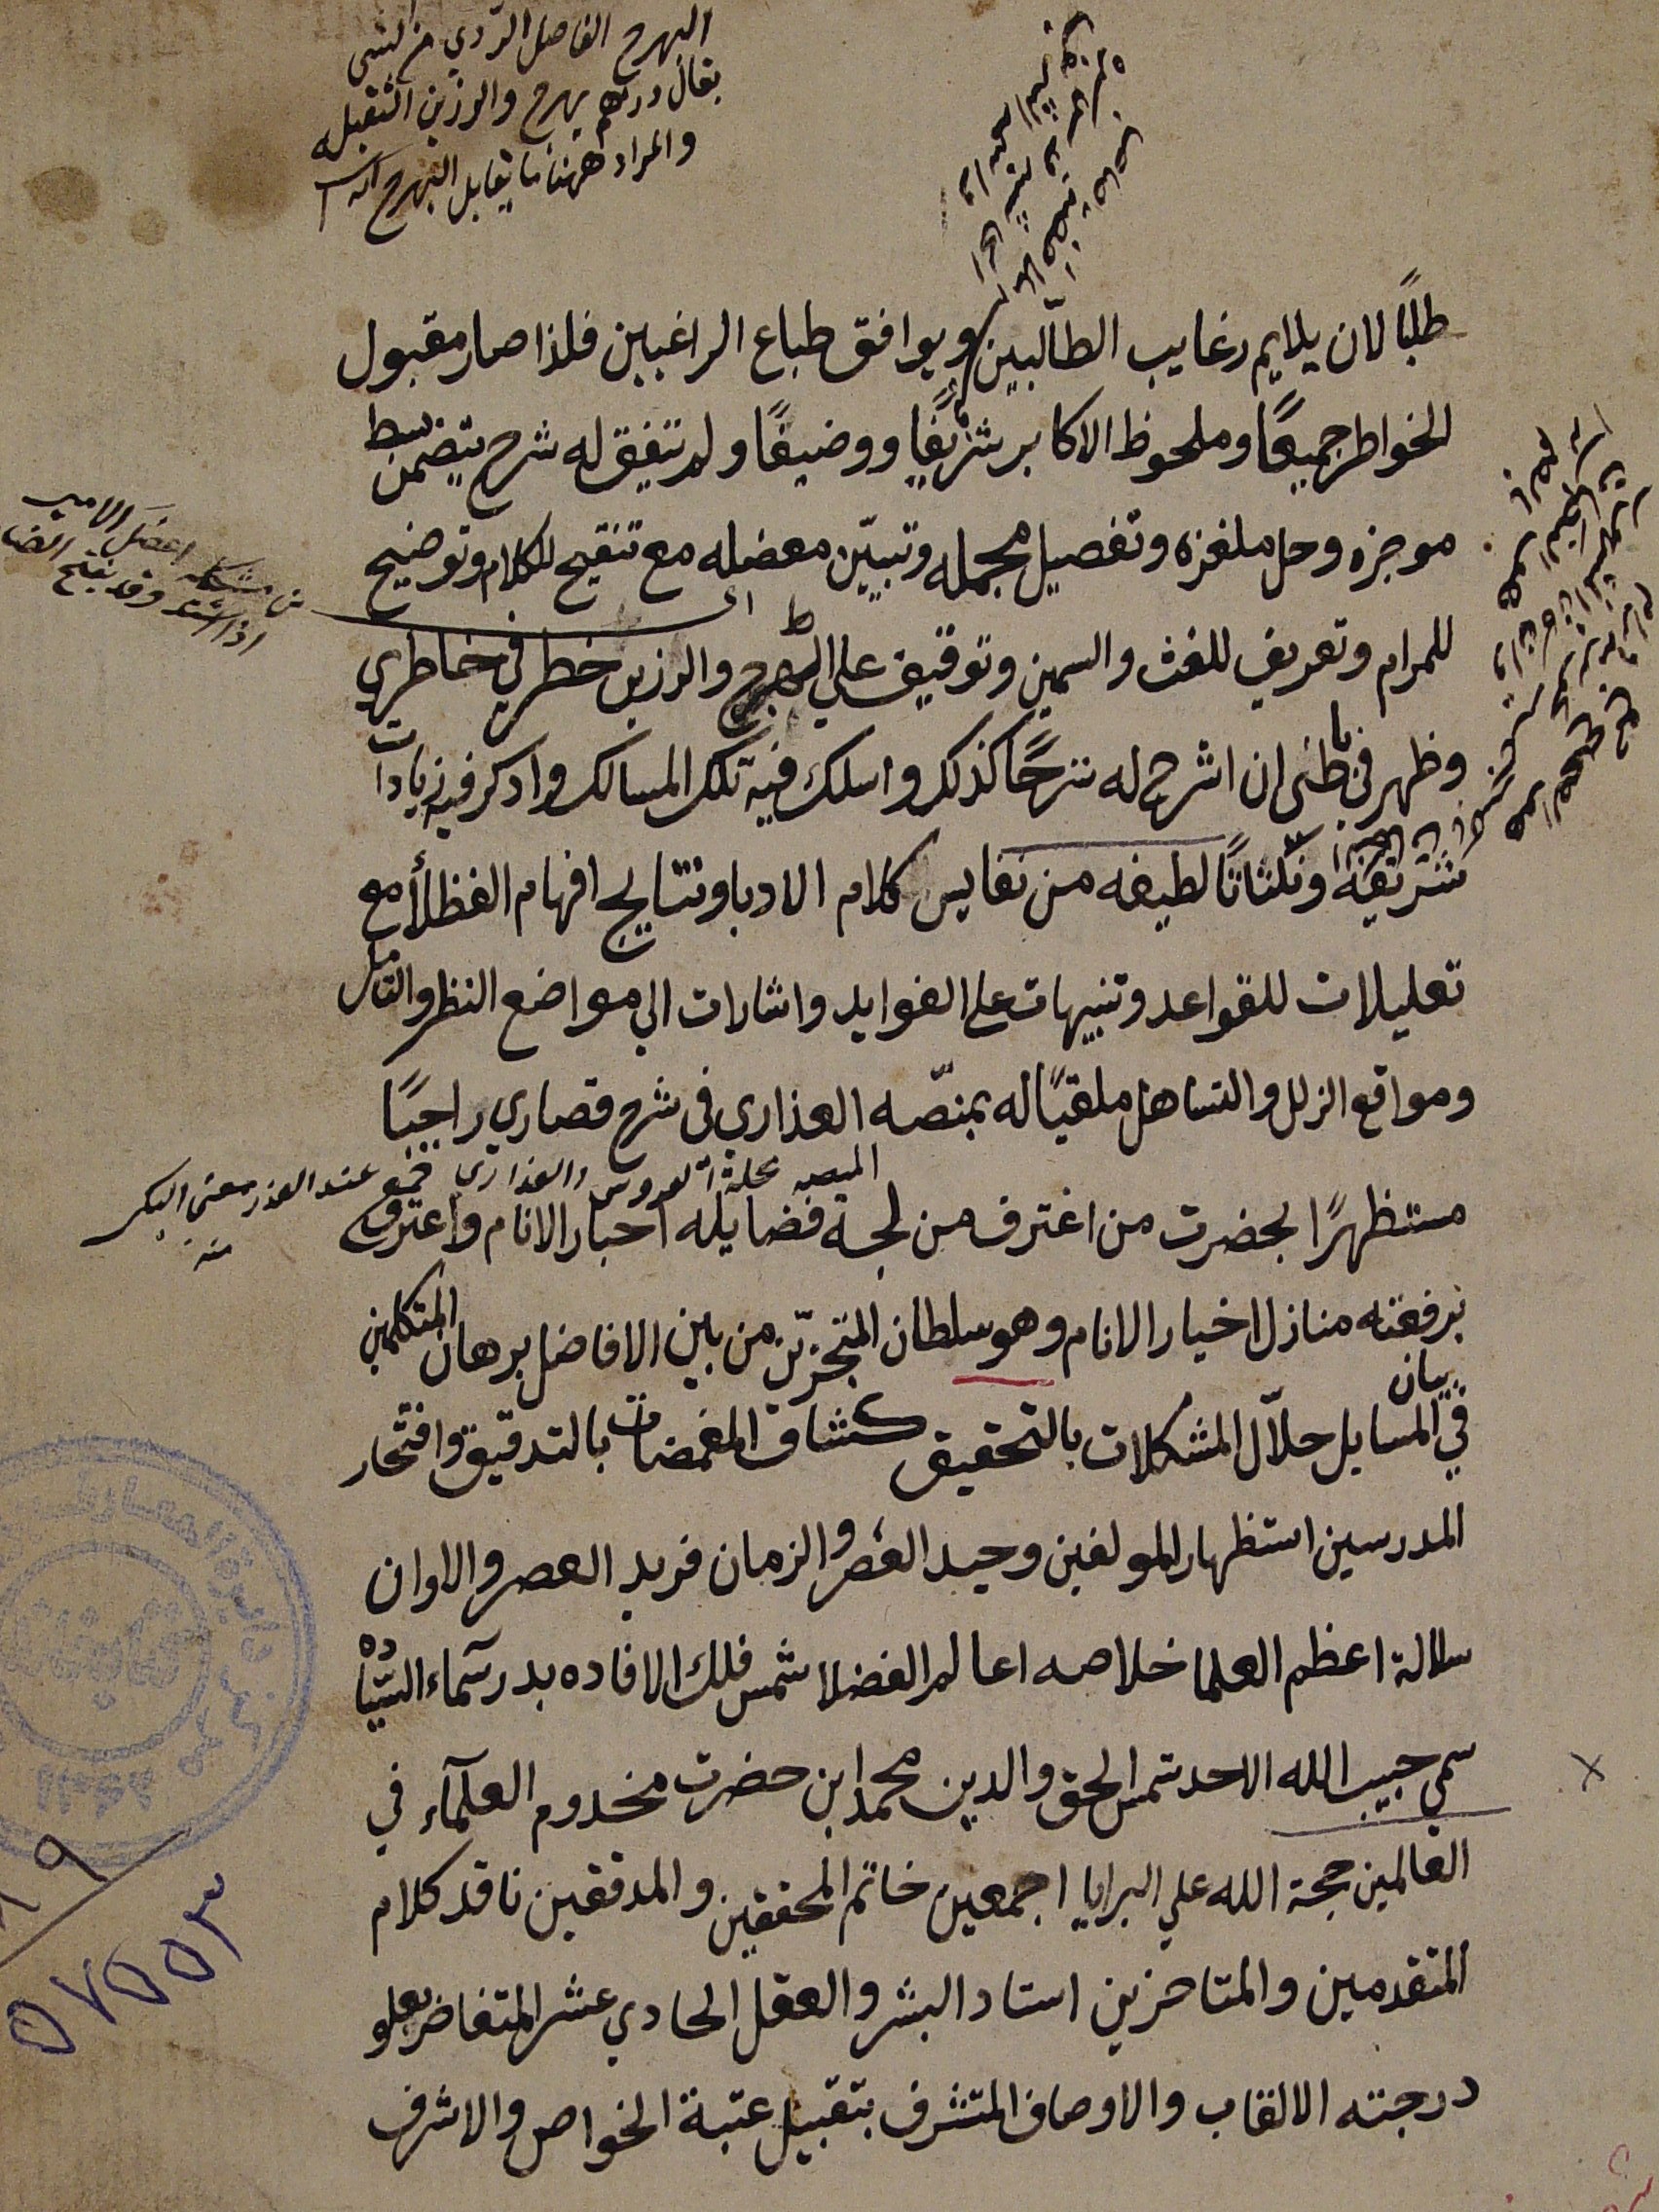 البهرج الفاصل الردي من الشي
يقال درهم بهرج والرزين الثقيل
والمراد ههنا ما يقابل البهرج
طلبًا لان يلايم رغايب الطالبين ويوافق طباع الراغبين فلذا صار مقبول
الخواطر جميعًا وملحوظ الاكابر شريفًا ووضيعًا ولم تتفق له شرح يتضمن بسط
موجزه وحل ملغزه وتفصيل مجمله وتبيّن معضله مع تنقيح للكلام وتوضيح
اي مشكله اعضل الامر
اذا اشتد وقد بفتح الضا
للمرام وتعريف للغث والسمين وتوقيف علي البهرج والرزين خطر في خاطري
وظهر في باطني ان اشرح له شرحًا كذلك واسلك فيه تلك المسالك واذكر فيه زيادات
شريفة ونكتاتًا لطيفه من نفايس كلام الادبا ونتايج افهام الفضلأ مع
تعليلات للقواعد وتنبيهات على الفوايد واشارات الي مواضع النظر والتامل
ومواقع الزلل والتساهل ملقيًا له بمنصّه العذاري في شرح قصاري راجيًا
المنصه محلة العروس والعذاري جمع عند العذر معنى البكر
منه
مستظهرًا بحضرت من اغترف من لجة فضايله احبار الانام واعترف
برفعته منازل اخيار الانام وهو سلطان المتبحرّين من بين الافاضل برهان المتكلمين
في بيان المسايل حلاّل المشكلات بالتحقيق كشاف المغمضات بالتدقيق وافتخار
المدرسين استظهار المولفين وحيد العصر والزمان فريد العصر والاوان
سلالة اعظم العلما خلاصه اعالم الفضلا شمس فلك الافاده بدر سماء السّياده
سمي حبيب الله الاحد شمس الحق والدين محمد ابن حضرت مخدوم العلمآء في
العالمين حجة الله علي البرايا اجمعين خاتم المحققين والمدققين ناقد كلام
المتقدمين والمتاخرين استاد البشر والعقل الحادي عشر المتفاخر بعلو
درجته الالقاب والاوصاف المتشرف بتقبيل عتبة الخواص والاشرف
٥٧٥٥٣